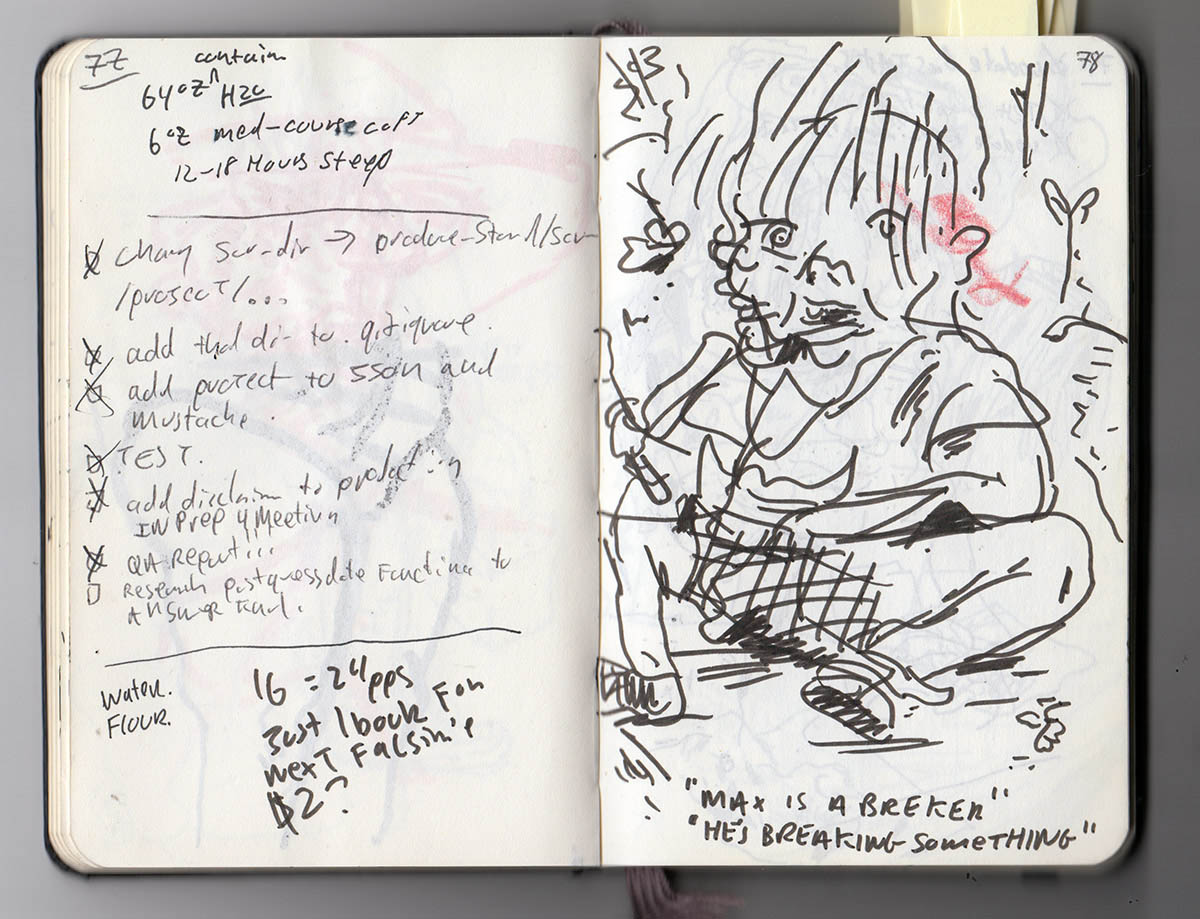 77
contain
64oz H20
6oz med-course coff
12-18 Hours steep
chang scr-dir → produce-
/project/...
add that dir to .gitignore.
add project to JSON and
mustache.
TEST.
add disclaim to production
IN Prep 4 Meeting
QA Report!!!
Research postgres date Function to
Answer
Water.
Flour.
16 = 24pps
Just 1 book For
next
$2?
78
"MAX IS A BREKER"
"HE'S BREAKING SOMETHING"